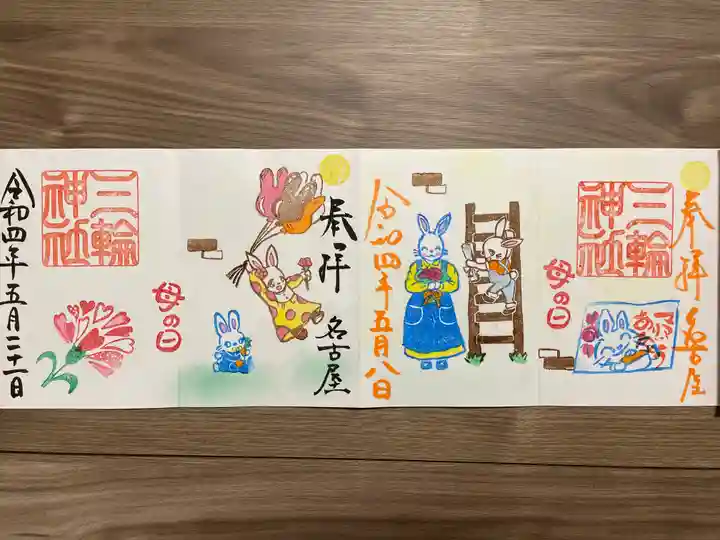 奉拝 名古屋
三輪
神社
ママ
ありがとう
母の日
令和四年五月八日
奉拝 名古屋
母の日
三輪
神社
令和四年五月二十一日